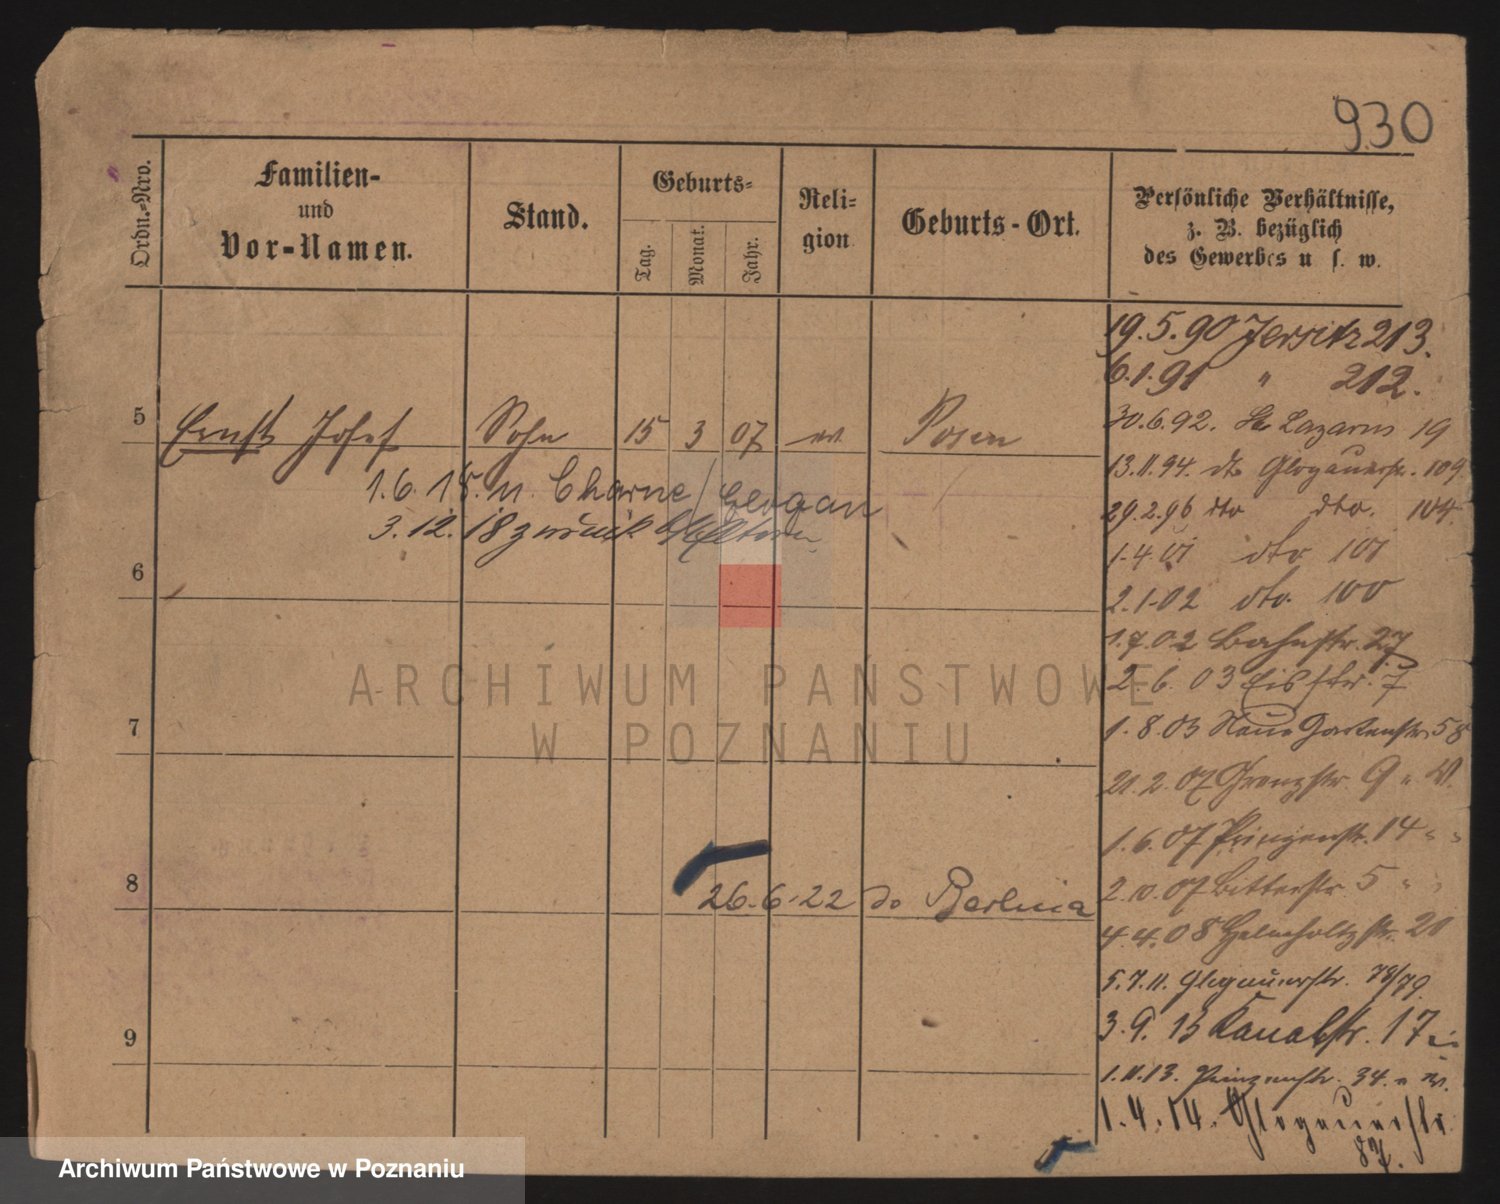 930
Ordn.-Nro.
Familien-
und
Vor-Namen.
Stand.
Geburts-
Tag.
Monat.
Jahr.
Reli-
gion
Geburts-Ort.
Persönliche Verhältnisse,
z. B. bezüglich
des Gewerbes u s. w.
19.5.90 Jersitz 213.
6.1.91 " 212.
30.6.92. St. Lazarus 19
13.11.94. dto Glogauerstr. 109
29.2.96 dto dto. 104.
1.4.01 dto 101
2.1.02 dto. 100
1.7.02 Bahnstr. 27
2.6.03 Eisstr. 7
1.8.03 Neue Gartenstr. 58
21.2.07 Grenzstr. 9
1.6.07 Prinzenstr. 14 " "
2.10.07 Bitterstr. 5 " "
4.4.08 Helmholtzstr. 21
5.7.11. Glogauerstr. 78/79.
3.9.13 Kanalstr. 17
1.11.13. Prinzenstr. 34.
1.4.14. Glogauerstr.
87.
5 Ernst Josef Sohn 15 3 07 ev Posen
1.6.18. n. Charne / Glogau
3.12.18 zurück Eltern
6
7
8
26.6.22 do Berlina
9
ARCHIWUM PAŃSTWOWE
W POZNANIU
Archiwum Państwowe w Poznaniu